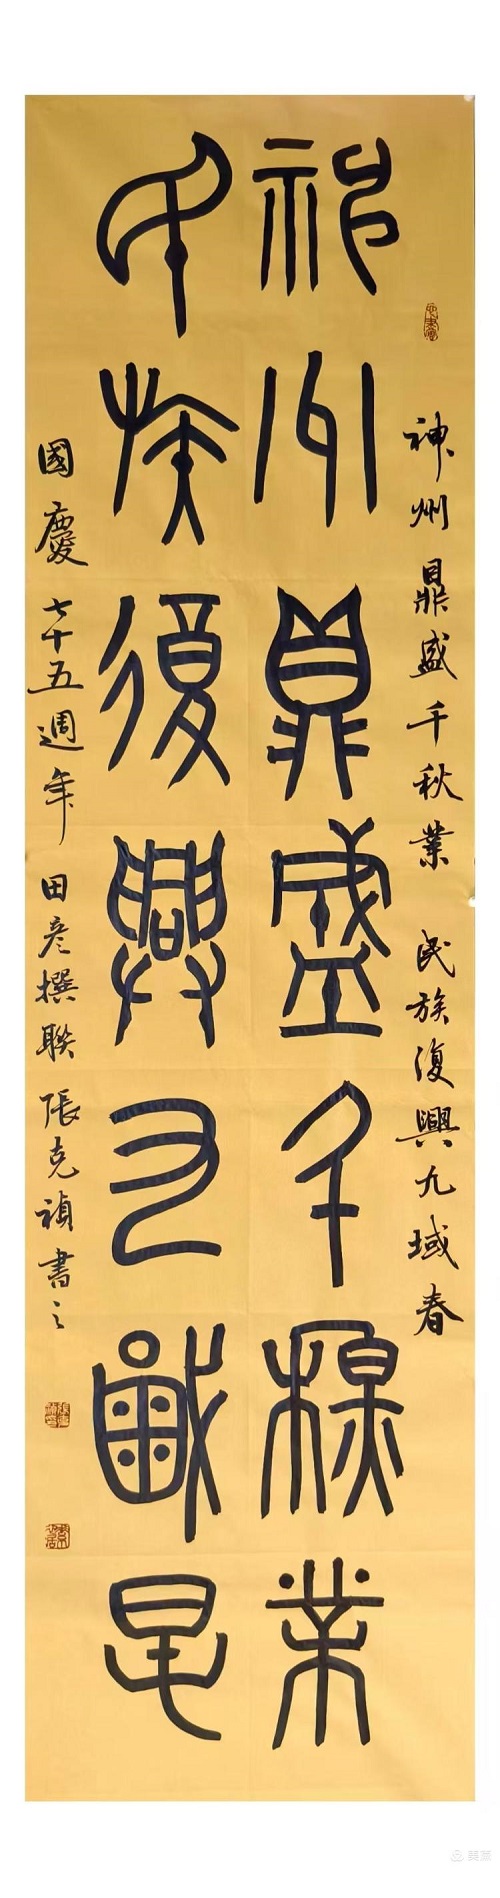 神州鼎盛千秋業 民族復興九域春
神州鼎盛千秋業
民族復興九域春
國慶七十五週年 田彦撰聯 張克禎書之
美篇